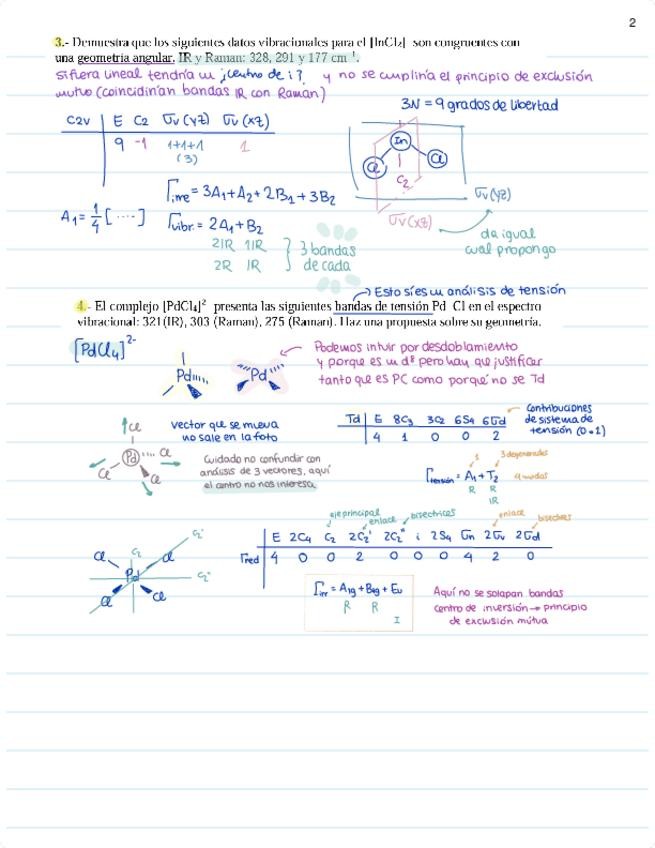 2
3.- Demuestra que los siguientes datos vibracionales para el [InCl₂]⁻ son congruentes con
una geometría angular. IR y Raman: 328, 291 y 177 cm⁻¹.
si fuera lineal tendría un ¿centro de i? y no se cumpliría el principio de exclusión
mutuo (coincidirían bandas IR con Raman)
3N = 9 grados de libertad
C2v E C2 σv(yz) σv(xz)
9 -1 1+1+1 1
(3)
In
Cl Cl
C2
σv(yz)
σv(xz)
da igual
cual propongo
Γirre = 3A1 + A2 + 2B1 + 3B2
A1 = 1/4 [ ···· ] Γvibr. = 2A1 + B2
2IR 1IR
2R 1R
3 bandas
de cada
→ Esto sí es un análisis de tensión
4.- El complejo [PdCl₄]²⁻ presenta las siguientes bandas de tensión Pd-Cl en el espectro
vibracional: 321 (IR), 303 (Raman), 275 (Raman). Haz una propuesta sobre su geometría.
[PdCl4]²⁻
Pd Pd
Podemos intuir por desdoblamiento
y porque es un d⁸ pero hay que justificar
tanto que es PC como porqué no se Td
Cl
Pd Cl
Cl Cl
vector que se mueva
no sale en la foto
Cuidado no confundir con
análisis de 3 vectores, aquí
el centro no nos interesa.
Td E 8C3 3C2 6S4 6σd
4 1 0 0 2
Contribuciones
de sistema de
tensión (0 o 1)
1 3 degenerados
Γtensión = A1 + T2 4 modos
R R
IR
eje principal
enlace bisectrices enlace bisectrices
E 2C4 C2 2C2' 2C2" i 2S4 σh 2σv 2σd
Γred 4 0 0 2 0 0 0 4 2 0
C2'
C2
C2"
Cl Cl
Pd
Cl Cl
Γirr = A1g + B2g + Eu
R R
I
Aquí no se solapan bandas
centro de inversión → principio
de exclusión mútua